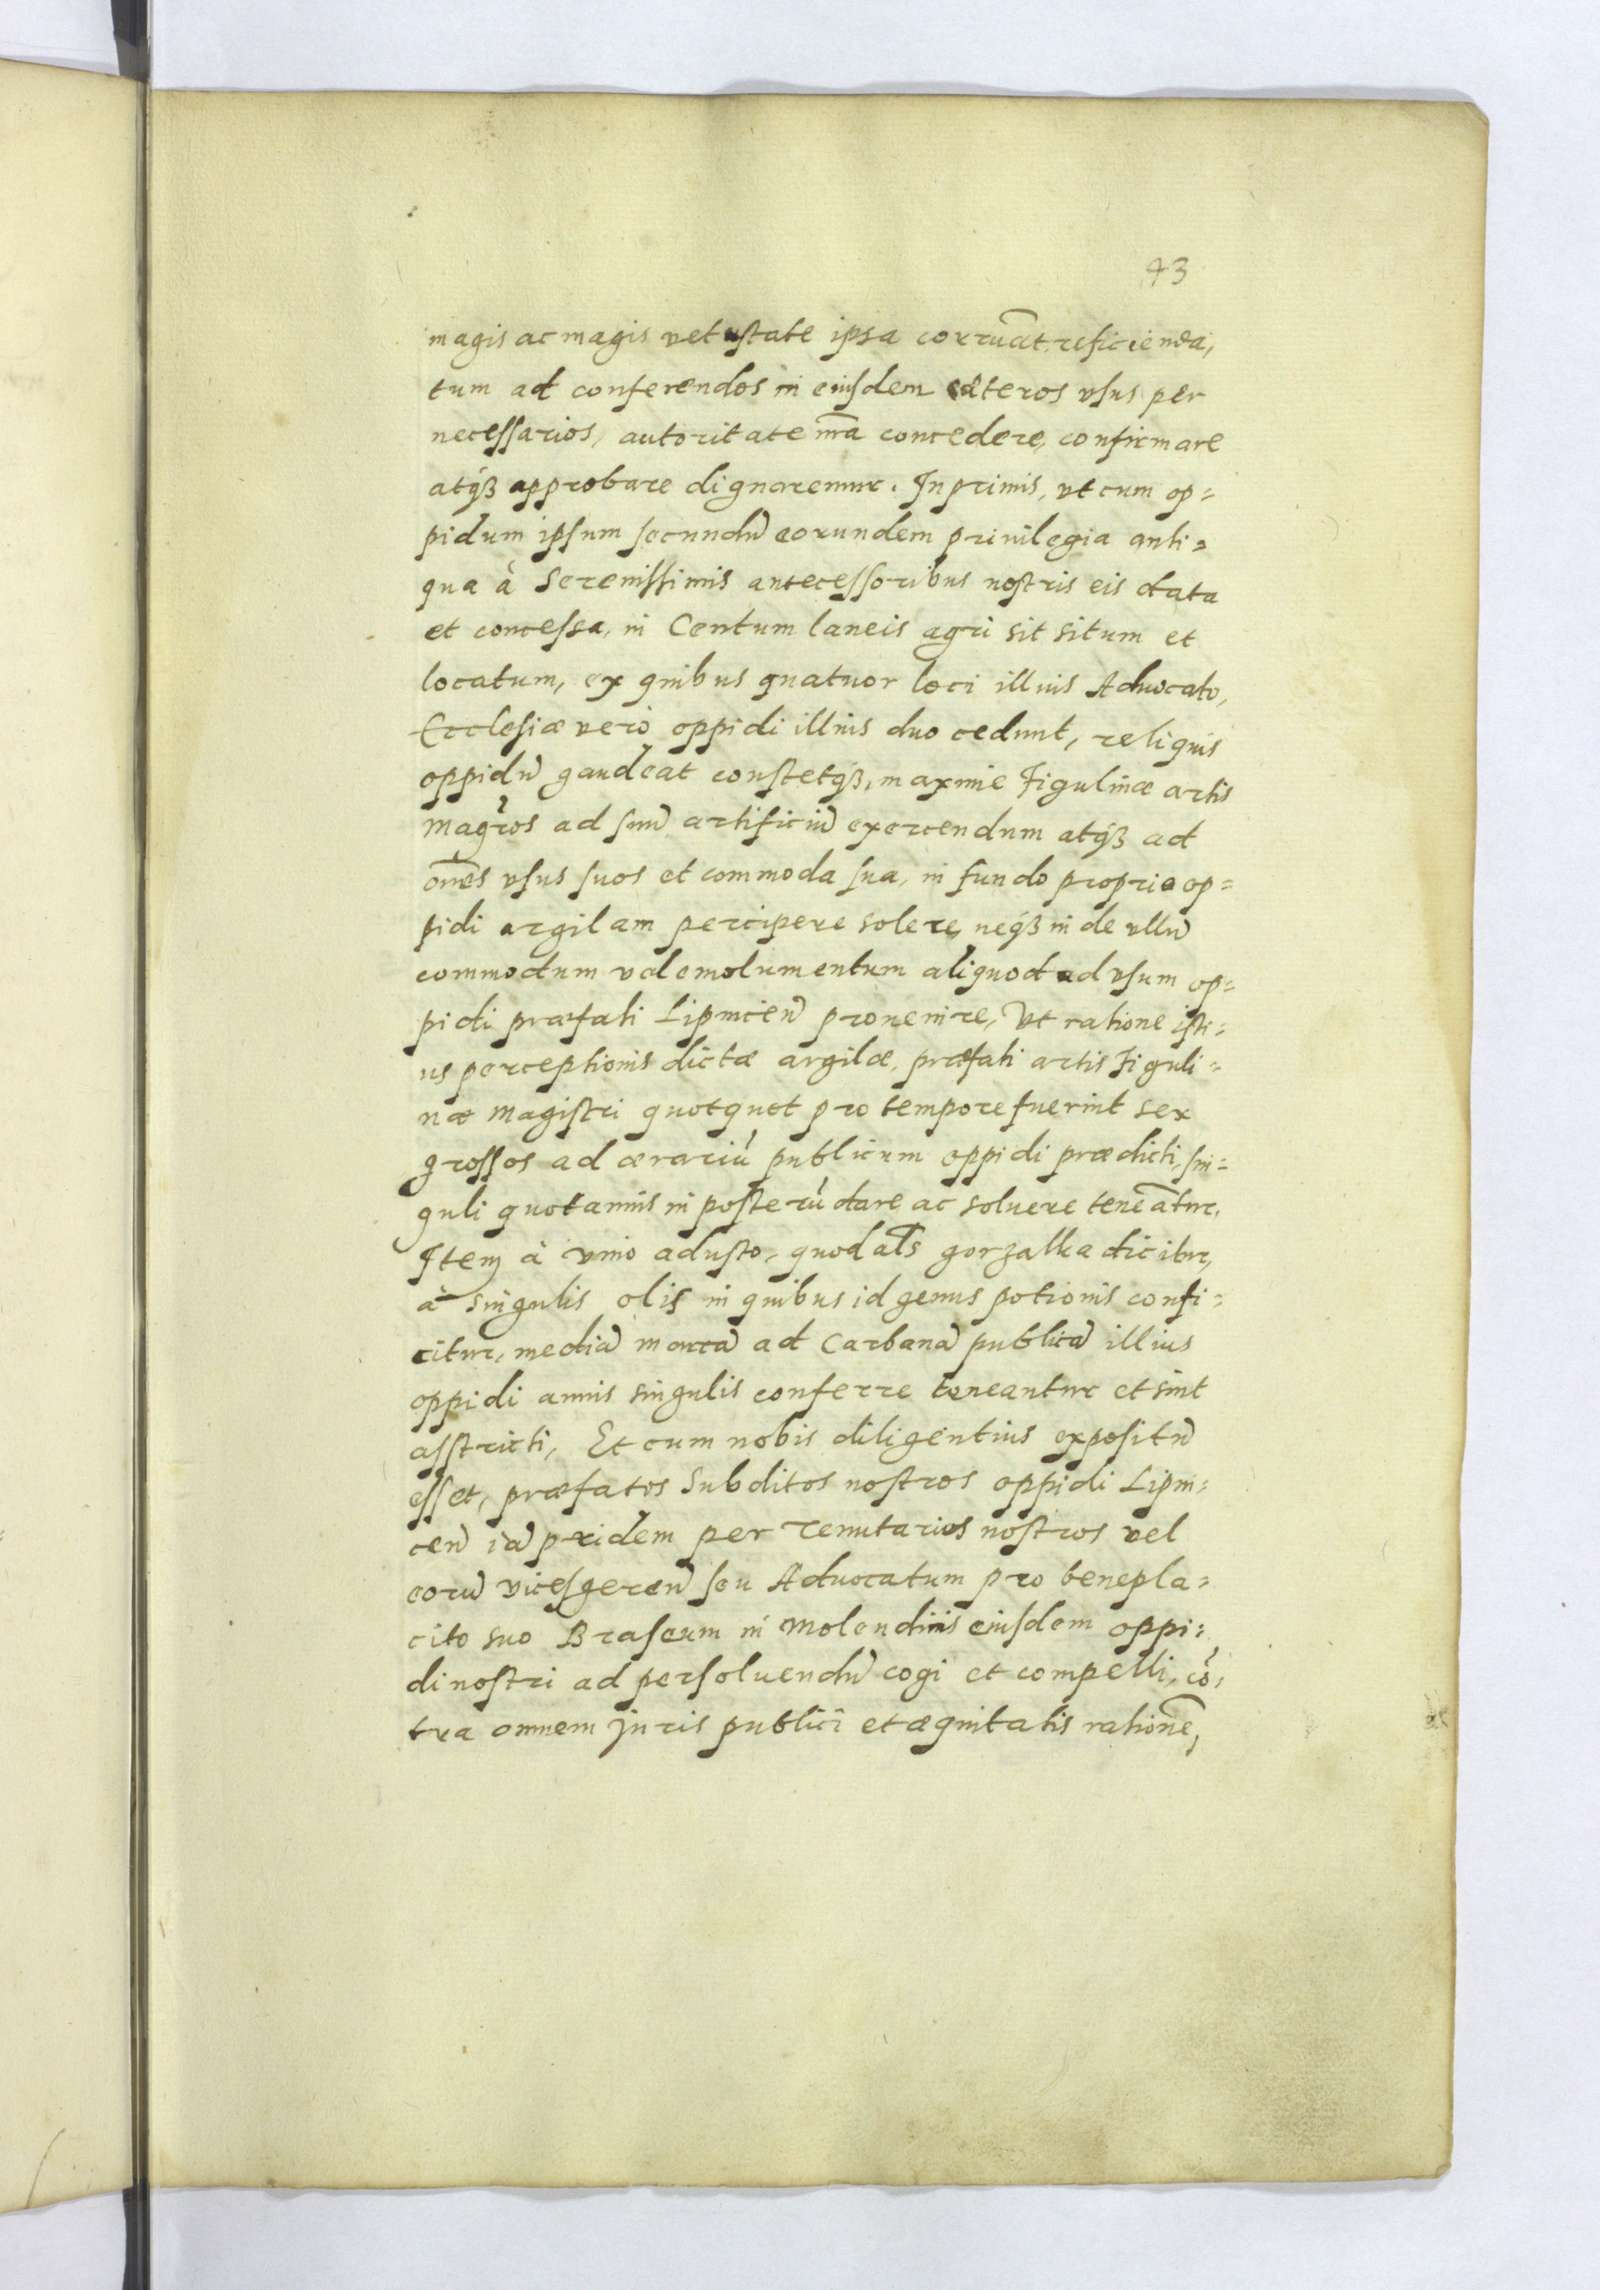 43
magis ac magis vetustate ipsa corruãt reficienda,
tum ad conferendos in eiusdem cæteros vsus per
necessarios, autoritate nr̃a concedere, confirmare
atq́ꝫ approbare dignaremur. Inprimis, vt cum op=
pidum ipsum secundũ eorundem priuilegia anti=
qua à Serenissimis antecessoribus nostris eis data
et concessa, in Centum laneis agri sit situm et
locatum, ex quibus quatuor loci illius Aduocato,
Ecclesiæ verò oppidi illius duo cedunt, reliquis
oppidũ gaudeat constetq́ꝫ, maxime Figulinæ artis
Magr̃os ad suũ artificiũ exercendum atq́ꝫ ad
oẽs vsus suos et commoda sua, in fundo proprio op=
pidi argilam percipere solere, neq́ꝫ inde vllũ
commodum vel emolumentum aliquod ad vsum op=
pidi præfati Lipnicen̄ prouenire, Vt ratione isti=
us perceptionis dictæ argilæ, præfati artis Figuli=
næ Magistri quotquot pro tempore fuerint sex
grossos ad ærariũ publicum oppidi prædicti, sin=
guli quotannis in posterũ dare ac soluere teneãtur,
Item à vino adusto, quod al̃s gorzalka dicitur,
à singulis olis in quibus id genus potionis confi=
citur, mediã marcã ad Carbanã publicã illius
oppidi annis singulis conferre teneantur et sint
asstricti, Et cum nobis diligentius expositũ
esset, præfatos Subditos nostros oppidi Lipni=
cen̄ iã pridem per Tenutarios nostros vel
eorũ vicesgeren̄ seu Aduocatum pro benepla=
cito suo Braseum in Molendinis eiusdem oppi=
di nostri ad persoluendũ cogi et compelli, cõ=
tra omnem Juris publici et æquitatis rationẽ,